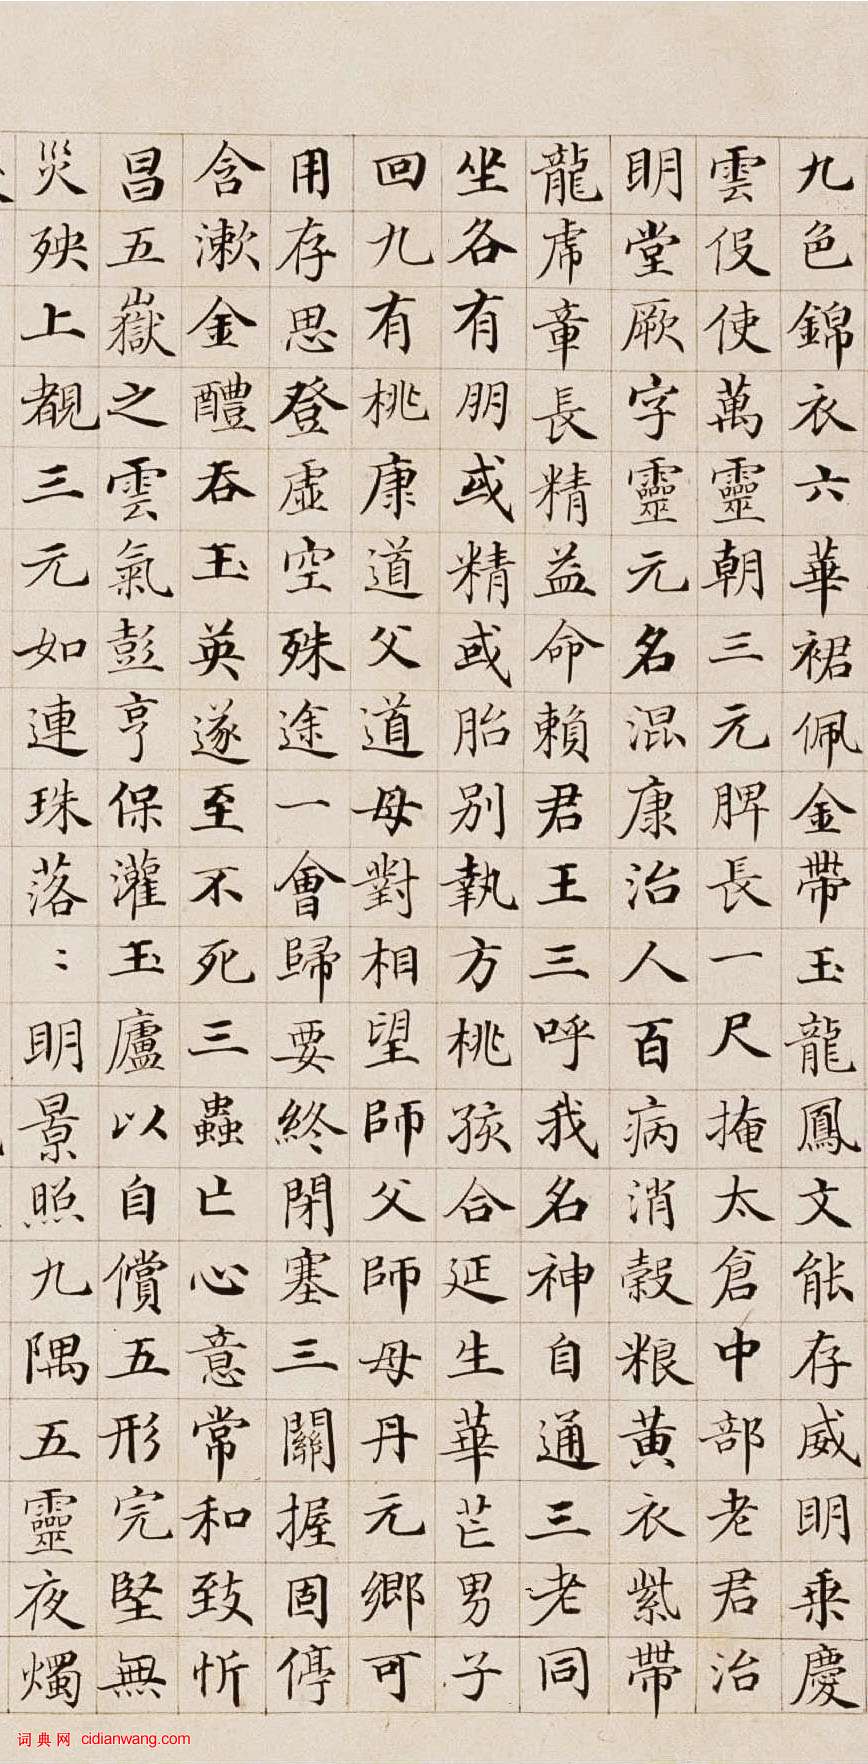 九色錦衣六華裙佩金帶玉龍鳳文能存威明乗慶
雲伇使萬靈朝三元脾長一尺掩太倉中部老君治
明堂厥字靈元名混康治人百病消穀粮黄衣紫帶
龍虎章長精益命賴君王三呼我名神自通三老同
坐各有朋或精或胎别執方桃孩合延生華芒男子
回九有桃康道父道母對相望師父師母丹元鄉可
用存思登虛空殊途一會歸要終閉塞三關握固停
含漱金醴吞玉英遂至不死三蟲亡心意常和致忻
昌五嶽之雲氣彭亨保灌玉廬以自償五形完堅無
災殃上覩三元如連珠落〻明景照九隅五靈夜燭
词典网 cidianwang.com